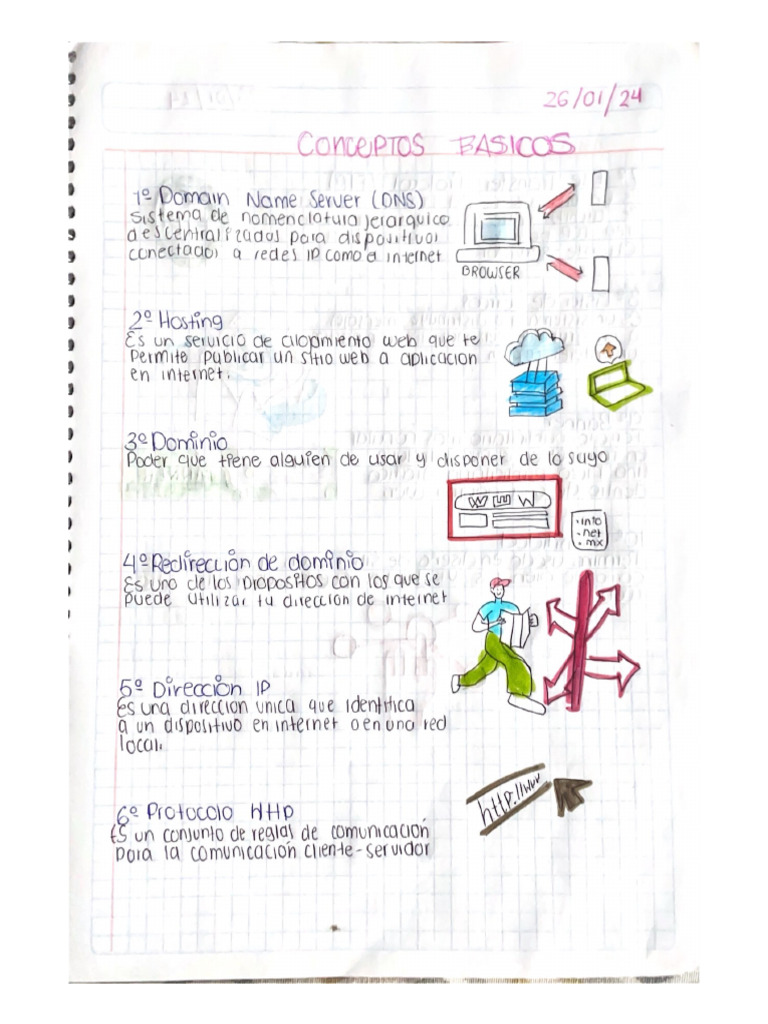 26/01/24
CONCEPTOS BASICOS
1º Domain Name Server (DNS)
Sistema de nomenclatura jerarquico
descentralizados para dispositivos
conectados a redes IP como a internet
BROWSER
2º Hosting
Es un servicio de alojamiento web que te
Permite publicar un sitio web a aplicacion
en internet.
3º Dominio
Poder que tiene alguien de usar y disponer de lo suyo
WWW
.info
.net
.mx
4º Redirección de dominio
Es uno de los propositos con los que se
puede utilizar tu dirección de internet
5º Dirección IP
es una direccion unica que identifica
a un dispositivo en internet o en una red
local.
http://www
6º Protocolo Http
Es un conjunto de reglas de comunicación
para la comunicación cliente-servidor